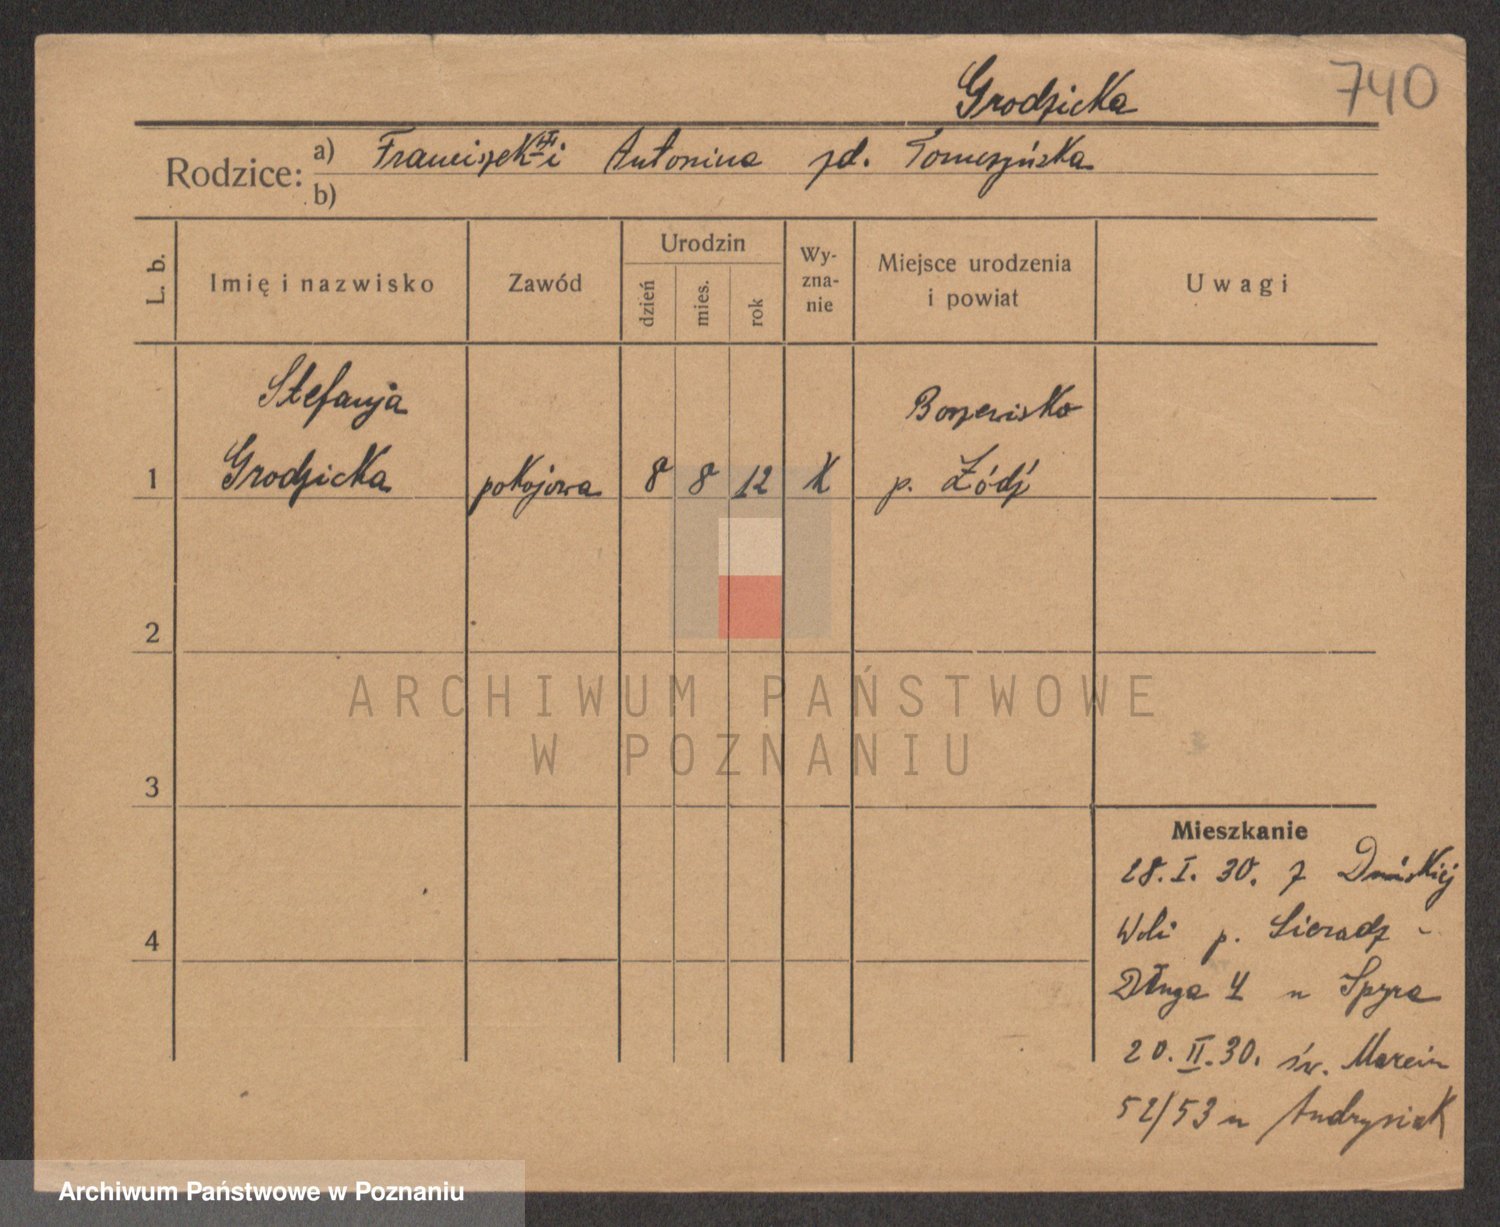 Grodzicka
740
Rodzice: a) Franciszek i Antonina zd. Tomszyńska
b)
L. b. Imię i nazwisko Zawód Urodzin dzień mies. rok Wy-zna-nie Miejsce urodzenia i powiat Uwagi
Stefanja Borzewisko
1 Grodzicka pokojowa 8 8 12 K p. Łódź
2
ARCHIWUM PAŃSTWOWE
W POZNANIU
3
Mieszkanie
28. I. 30. z Duńskiej
4 Woli p. Sieradz -
Długa 4 u Spyra
20. II. 30. św. Marcin
52/53 u Andrysiak
Archiwum Państwowe w Poznaniu